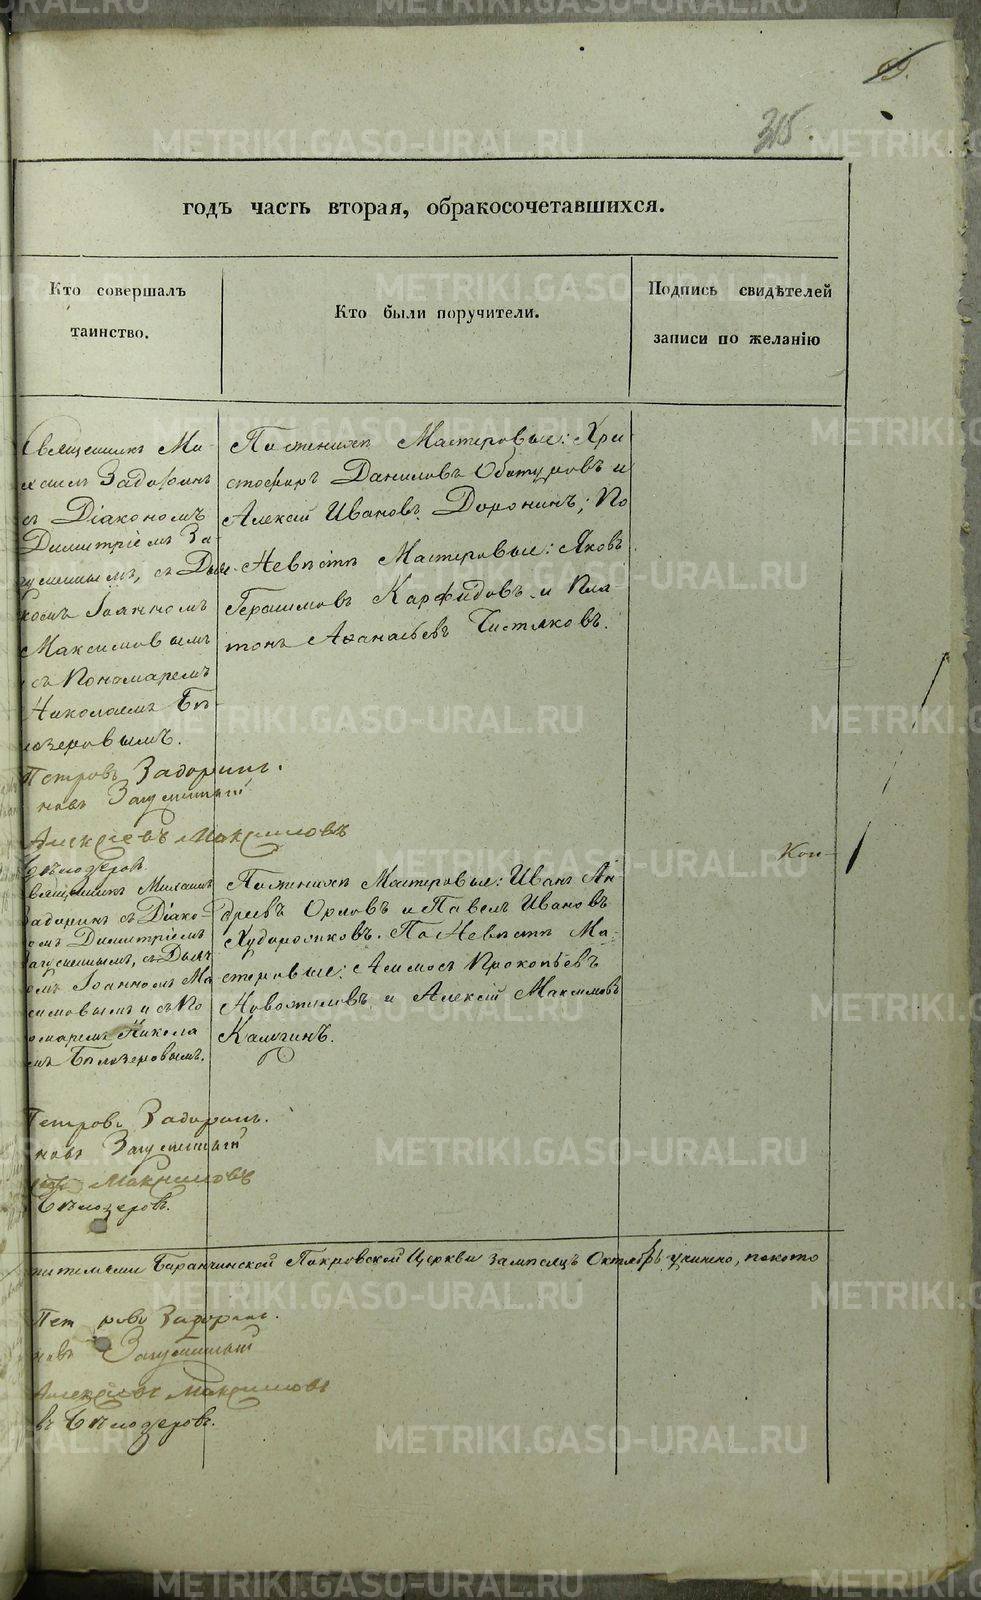 315.
годъ часть вторая, обракосочетавшихся.
Кто совершалъ
таинство.
Кто были поручители.
Подпись свидѣтелей
записи по желанію
Священникъ Ми-
хаилъ Задоринъ
съ Діакономъ
Димитріемъ За-
гуменнымъ, съ Дьяч
комъ Іоанномъ
Максимовымъ
съ Пономаремъ
Николаемъ Бѣ-
лозеровымъ.
Петровъ Задоринъ.
новъ Загуменный
Алексѣевъ Максимовъ
Бѣлозеровъ
По женихѣ Мастеровые: Хри-
стофоръ Даниловъ Обатуровъ и
Алексѣй Ивановъ Доронинъ; По
Невѣстѣ Мастеровые: Яковъ
Герасимовъ Карфидовъ и Пла-
тонъ Аѳанасьевъ Чистяковъ.
вященникъ Михаилъ
Задоринъ съ Діако-
омъ Димитріемъ
Загуменнымъ, съ Дьяч
омъ Іоанномъ Ма
симовымъ и съ По
омаремъ Никола
емъ Бѣлозеровымъ.
Петровъ Задоринъ.
новъ Загуменный
Максимовъ
Бѣлозеровъ.
По женихѣ Мастеровые: Иванъ Ан-
дреевъ Орловъ и Павелъ Ивановъ
Худорожковъ. По Невѣстѣ Ма-
стеровые: Амосъ Прокопьевъ
Новожиловъ и Алексѣй Максимовъ
Калугинъ.
Коп-
жителями Баранчинской Покровской Церкви за мѣсяцъ Октябрь учинено, покото
Петровъ Задоринъ.
новъ Загуменный
Алексѣевъ Максимовъ
въ Бѣлозеровъ.
METRIKI.GASO-URAL.RU